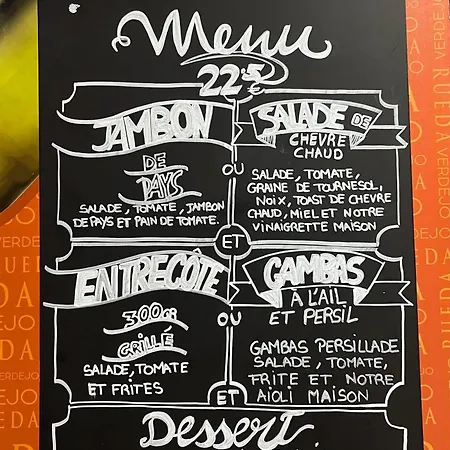 Menu
22,5€
JAMBON
DE
PAYS
SALADE, TOMATE, JAMBON
DE PAYS ET PAIN DE TOMATE.
OU
SALADE DE
CHEVRE
CHAUD
SALADE, TOMATE,
GRAINE DE TOURNESOL,
NOIX, TOAST DE CHEVRE
CHAUD, MIEL ET NOTRE
VINAIGRETTE MAISON
ET
ENTRECÔTE
300gr
GRILLÉ
SALADE, TOMATE
ET FRITES
OU
GAMBAS
À L'AIL
ET PERSIL
GAMBAS PERSILLADE
SALADE, TOMATE,
FRITE ET NOTRE
AIOLI MAISON
ET
Dessert
VERDEJO
RUEDA
VERDEJO
RUEDA
VERDEJO
RUEDA